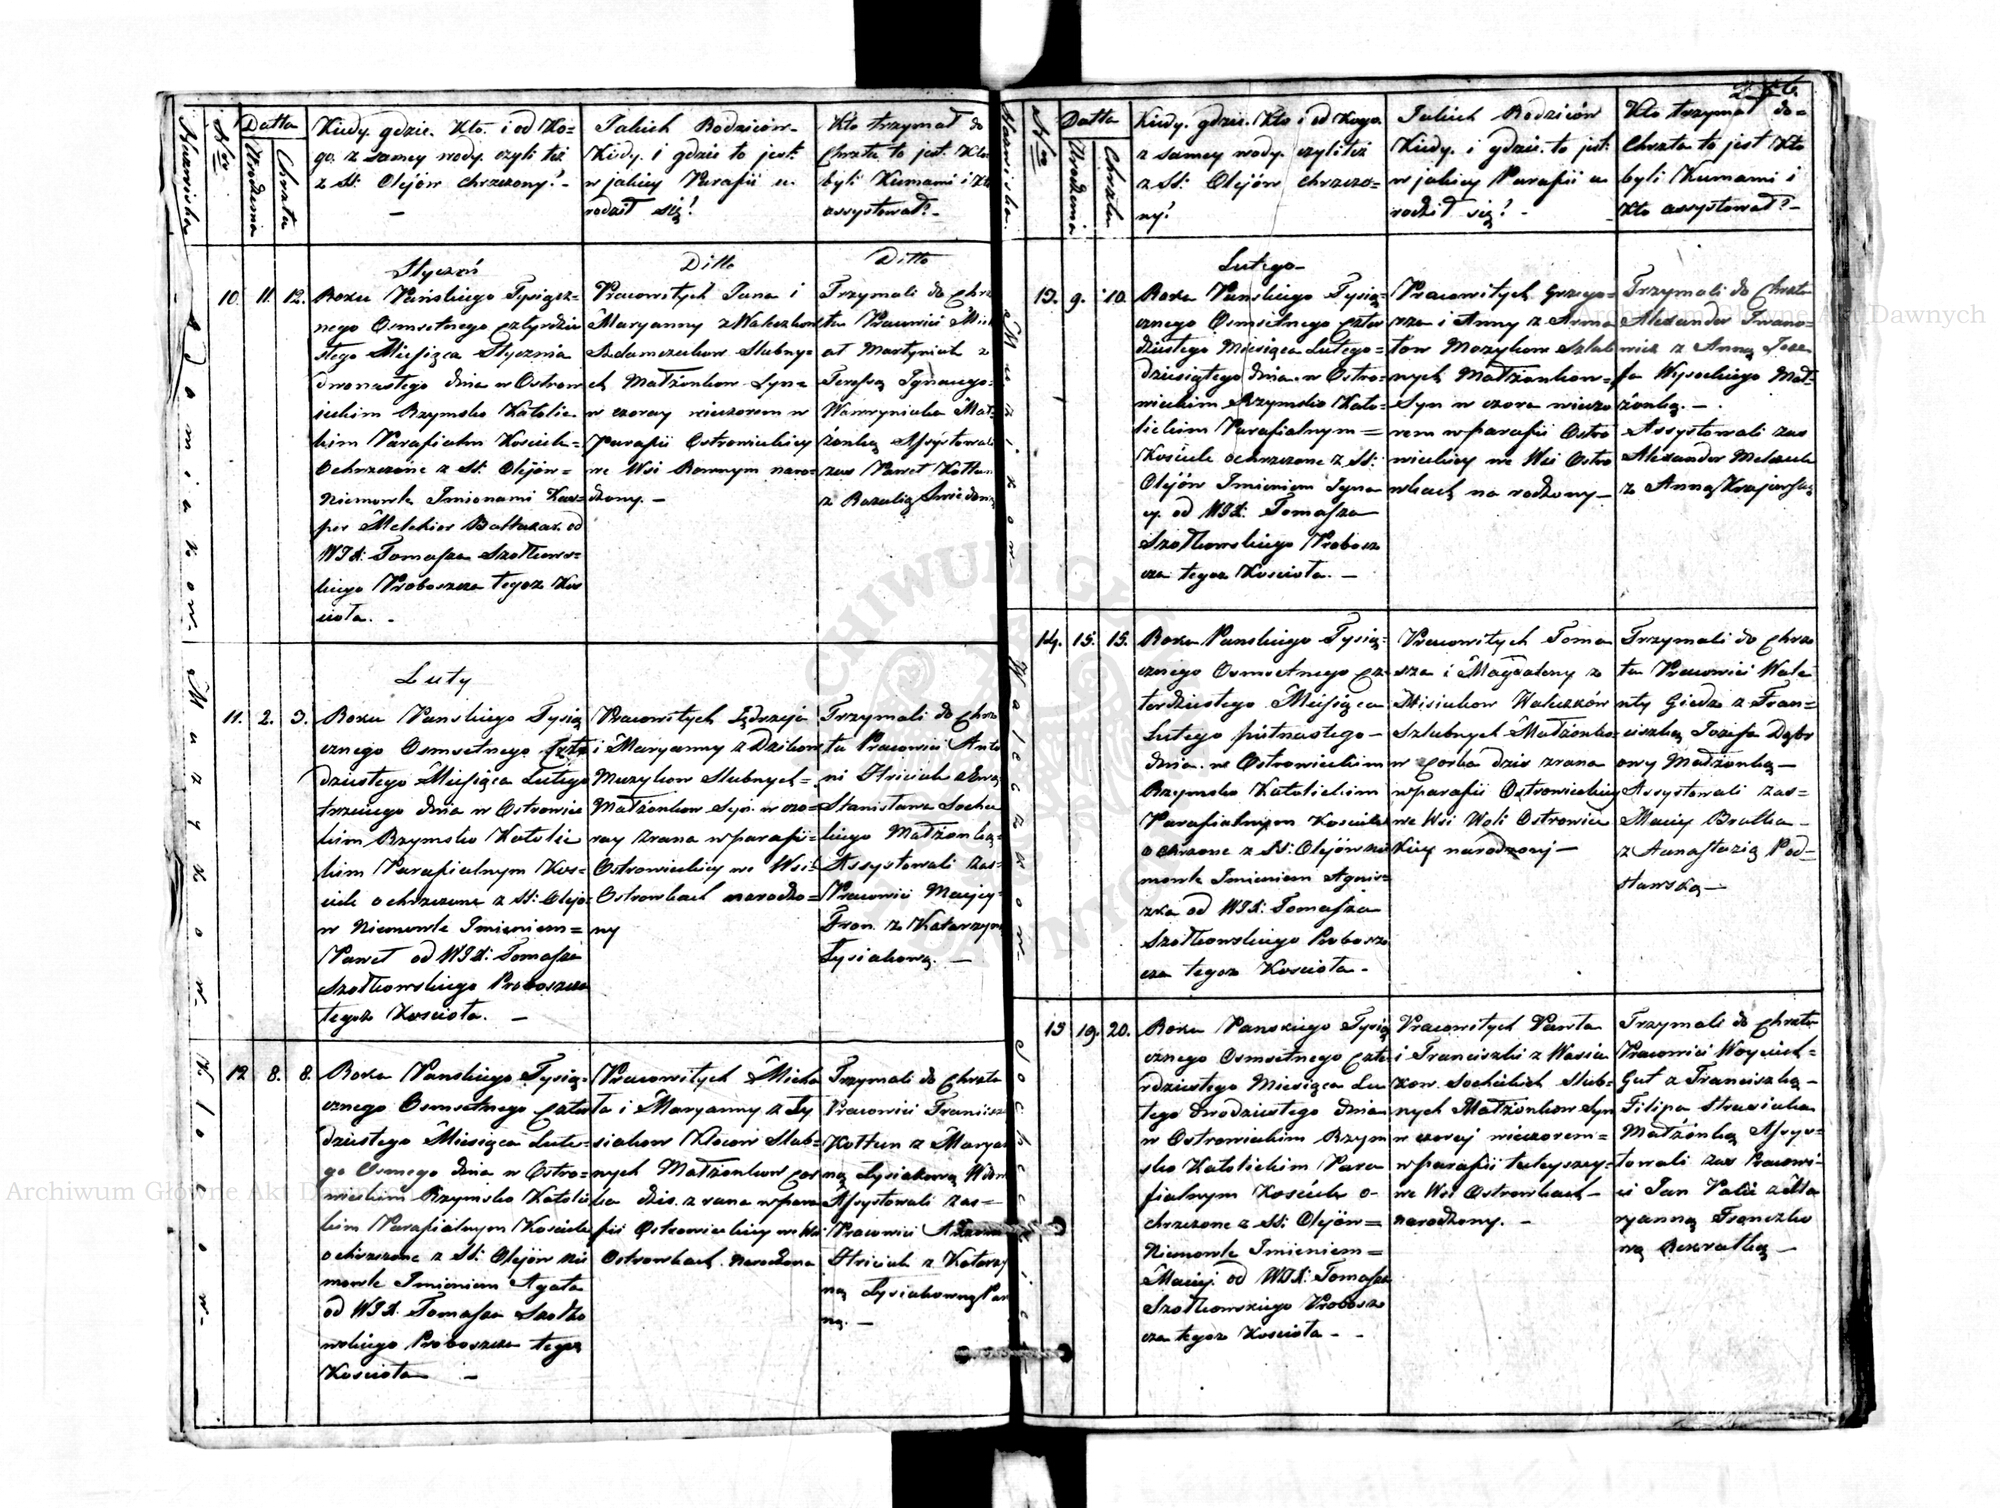 Nazwiska
Nr
Datta
Urodzenia
Chrztu
Kiedy. gdzie. Kto. i od Ko=
go. z samey wody. czyli też
z SS: Olejów chrzczony? -
Jakich Rodziców-
Kiedy. i gdzie to jest:
w jakiey Parafii u.
rodził się?
Kto trzymał do
Chrztu to jest. Kto
byli Kumami i Kto
assystował? -
Styczeń
Ditto
Ditto
Adamiaków
10. 11. 12.
Roku Pańskiego Tysiącz=
nego Osmsetnego Czterdzie
stego Miesiąca Stycznia
dwunastego dnia w Ostrow
ieckim Rzymsko Katolic
kim Parafialn Kościele=
Ochrzczone z SS: Olejów=
Niemowle Imionami Kas=
per Melchior Baltazar. od
WJX: Tomasza Szołkows=
kiego Proboszcza tegoż Koś
cioła. -
Pracowitych Jana i
Maryanny z
Slubny=
ch Małżonków Syn=
w czoray wieczorem w
Parafii Ostrowieckiey
we Wsi Rownym naro=
dzony. -
Trzymali do Chrz
tu Pracowici Mich
ał Martyniak z
Teressą Ignacego=
Wawryniuka Mał=
żonką Assystowali
zas Paweł Kottun
z Rozalią
Luty
Mazyków
11. 2. 3.
Roku Panskiego Tysią
cznego Osmsetnego Czte
dziestego Miesiąca Lutego
trzeciego dnia w Ostrowie
kim Rzymsko Katolic
kim Parafialnym Koś=
ciele ochrzczone z SS: Olejo=
w Niemowle Imieniem=
Paweł od WJX: Tomasza
Szołkowskiego Proboszcza
tegoż Kościoła. -
Pracowitych Jędrzeja
i Maryanny z Dzikow
Mazykow Slubnych=
Małżonkow Syn w czo=
ray zrana w parafii=
Ostrowieckiey we Wsi=
Ostrowkach narodzo=
ny
Trzymali do Chrz
tu Pracowici Anto
ni Struciuk z Ewą
Stanisława Socha
kiego Małżonką
Assystowali zas=
Pracowici Maciey=
Fron. z Katarzyną
Łysiakową. -
Kloców
12 8. 8.
Roku Panskiego Tysią=
cznego Osmsetnego Czter
dziestego Miesiąca Lute=
go Osmego dnia w Ostro=
wieckim Rzymsko Katolic
kim Parafialnym Kościele
ochrzczone z SS: Olejów Nie
mowle Imieniem Agata
od WJX: Tomasza Szołko
wskiego Proboszcza tegoż
Kościoła -
Pracowitych Micha
ła i Maryanny z Ły
siakow Klocow Slub=
nych Małżonkow Cor
ka dzis. z rana w para
fii Ostrowieckiey we Wsi
Ostrowkach. Narodzona
Trzymali do Chrztu
Pracowici Francisz
Kottun z Marya
ną Łysiakową
Assystowali zas=
Pracowici
Struciuk z Katarzy
ną Łysiakowną Pan
ną. -
Nazwiska.
Nr
Datta
Urodzenia
Chrztu
Kiedy. gdzie. Kto i od Kogo.
z samey wody. czyli też
z SS: Olejów chrzczo=
ny?
Jakich Rodziców
Kiedy. i gdzie. to jest
w jakiey Parafii u
rodził się? -
Kto trzymał do=
Chrztu to jest Kto
byli Kumami i
Kto assystował? -
Lutego-
Mazików
13. 9. 10.
Roku Panskiego Tysią=
cznego Osmsetnego Czter
dziestego Miesiąca Lutego=
dziesiątego dnia w Ostro=
wieckim Rzymsko Kato=
lickim Parafialnym=
Kościele ochrzczone z SS:
Olejów Imieniem Igna
cy. od WJX: Tomasza
Szołkowskiego Probosz
cza tegoż Kościoła. -
Pracowitych Grzego=
rza i Anny z
Mazykow Szlub
nych Małżonkow=
Syn w czora wieczo
rem w parafii Ostro
wieckiey we Wsi Ostro
wkach na rodzony -
Trzymali do Chrztu
Alexander Iwano=
wicz z Anną Joze
fa Wysockiego Mał=
żonką. -
Assystowali zas
Alexander
z Anną Krajewską
Waleczków
14. 15. 15.
Roku Panskiego Tysią=
cznego Osmsetnego Cz
terdziestego Miesiąca
Lutego piętnastego=
dnia. w Ostrowieckim
Rzymsko Katolickim
Parafialnym Kościele
ochrzone z SS: Olejów nie
mowle Imieniem Agnis=
zka od WJX: Tomasza
Szołkowskiego Probosz
cza tegoż Kościoła -
Pracowitych Toma
sza i Magdaleny z
Misiukow Waleczków
Szlubnych Małżonko=
w Corka dzis zrana
w parafii Ostrowieckiey
we Wsi Woli Ostrowiec
Kiey narodzony -
Trzymali do Chrz
tu Pracowici Wale
nty Giedz z Fran=
ciszką Jozefa Dąbr
owy Małżonką -
Assystowali zas=
Maciy Bralka -
z Anastazią Pod=
stawską -
Sochackich
15 19. 20.
Roku Panskiego Tysią
cznego Osmsetnego Czte
rdziestego Miesiąca Lu
tego dwodziestego dnia
w Ostrowieckim Rzym
sko Katolickim Para
fialnym Kościele o-
chrzczone z SS: Olejów=
Niemowle Imieniem=
Maciej. od WJX: Tomasza
Szołkowskiego Probosz
cza tegoż Kościoła - -
Pracowitych Pawła
i Franciszki z Wasiu
kow. Sochackich Slub=
nych Małżonkow Syn
w czorey wieczorem=
w parafii tuteyszey=
we Wsi Ostrowkach -
narodzony. -
Trzymali do Chrztu
Pracowici Woyciech=
Gut z Franciszką -
Filipa Strusiuka
Małżonką Assys=
towali zas Pracowi=
ci Jan Palic z Ma
ryanną
Archiwum Główne Akt Dawnych
Archiwum Główne Akt Dawnych